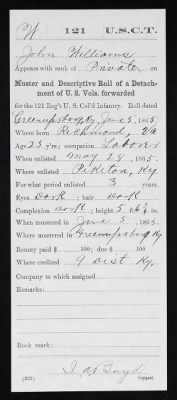 W 121 U.S.C.T.
John Williams
Appears with rank of Private on
Muster and Descriptive Roll of a Detach-
ment of U. S. Vols. forwarded
for the 121 Reg't U. S. Col'd Infantry. Roll dated
Greenupsburg Ky, June 5, 1865.
Where born Richmond, Va
Age 23 y'rs; occupation Laborer
When enlisted May 28, 1865.
Where enlisted Pikton, Ky
For what period enlisted 3 years.
Eyes Dark; hair Dark
Complexion Dark; height 5 ft. 6½ in.
When mustered in June 5, 1865.
Where mustered in Greenupsburg Ky
Bounty paid $ 100; due $ 100
Where credited 9 Dist Ky.
Company to which assigned
Remarks:
Book mark:
(339) Copyist.